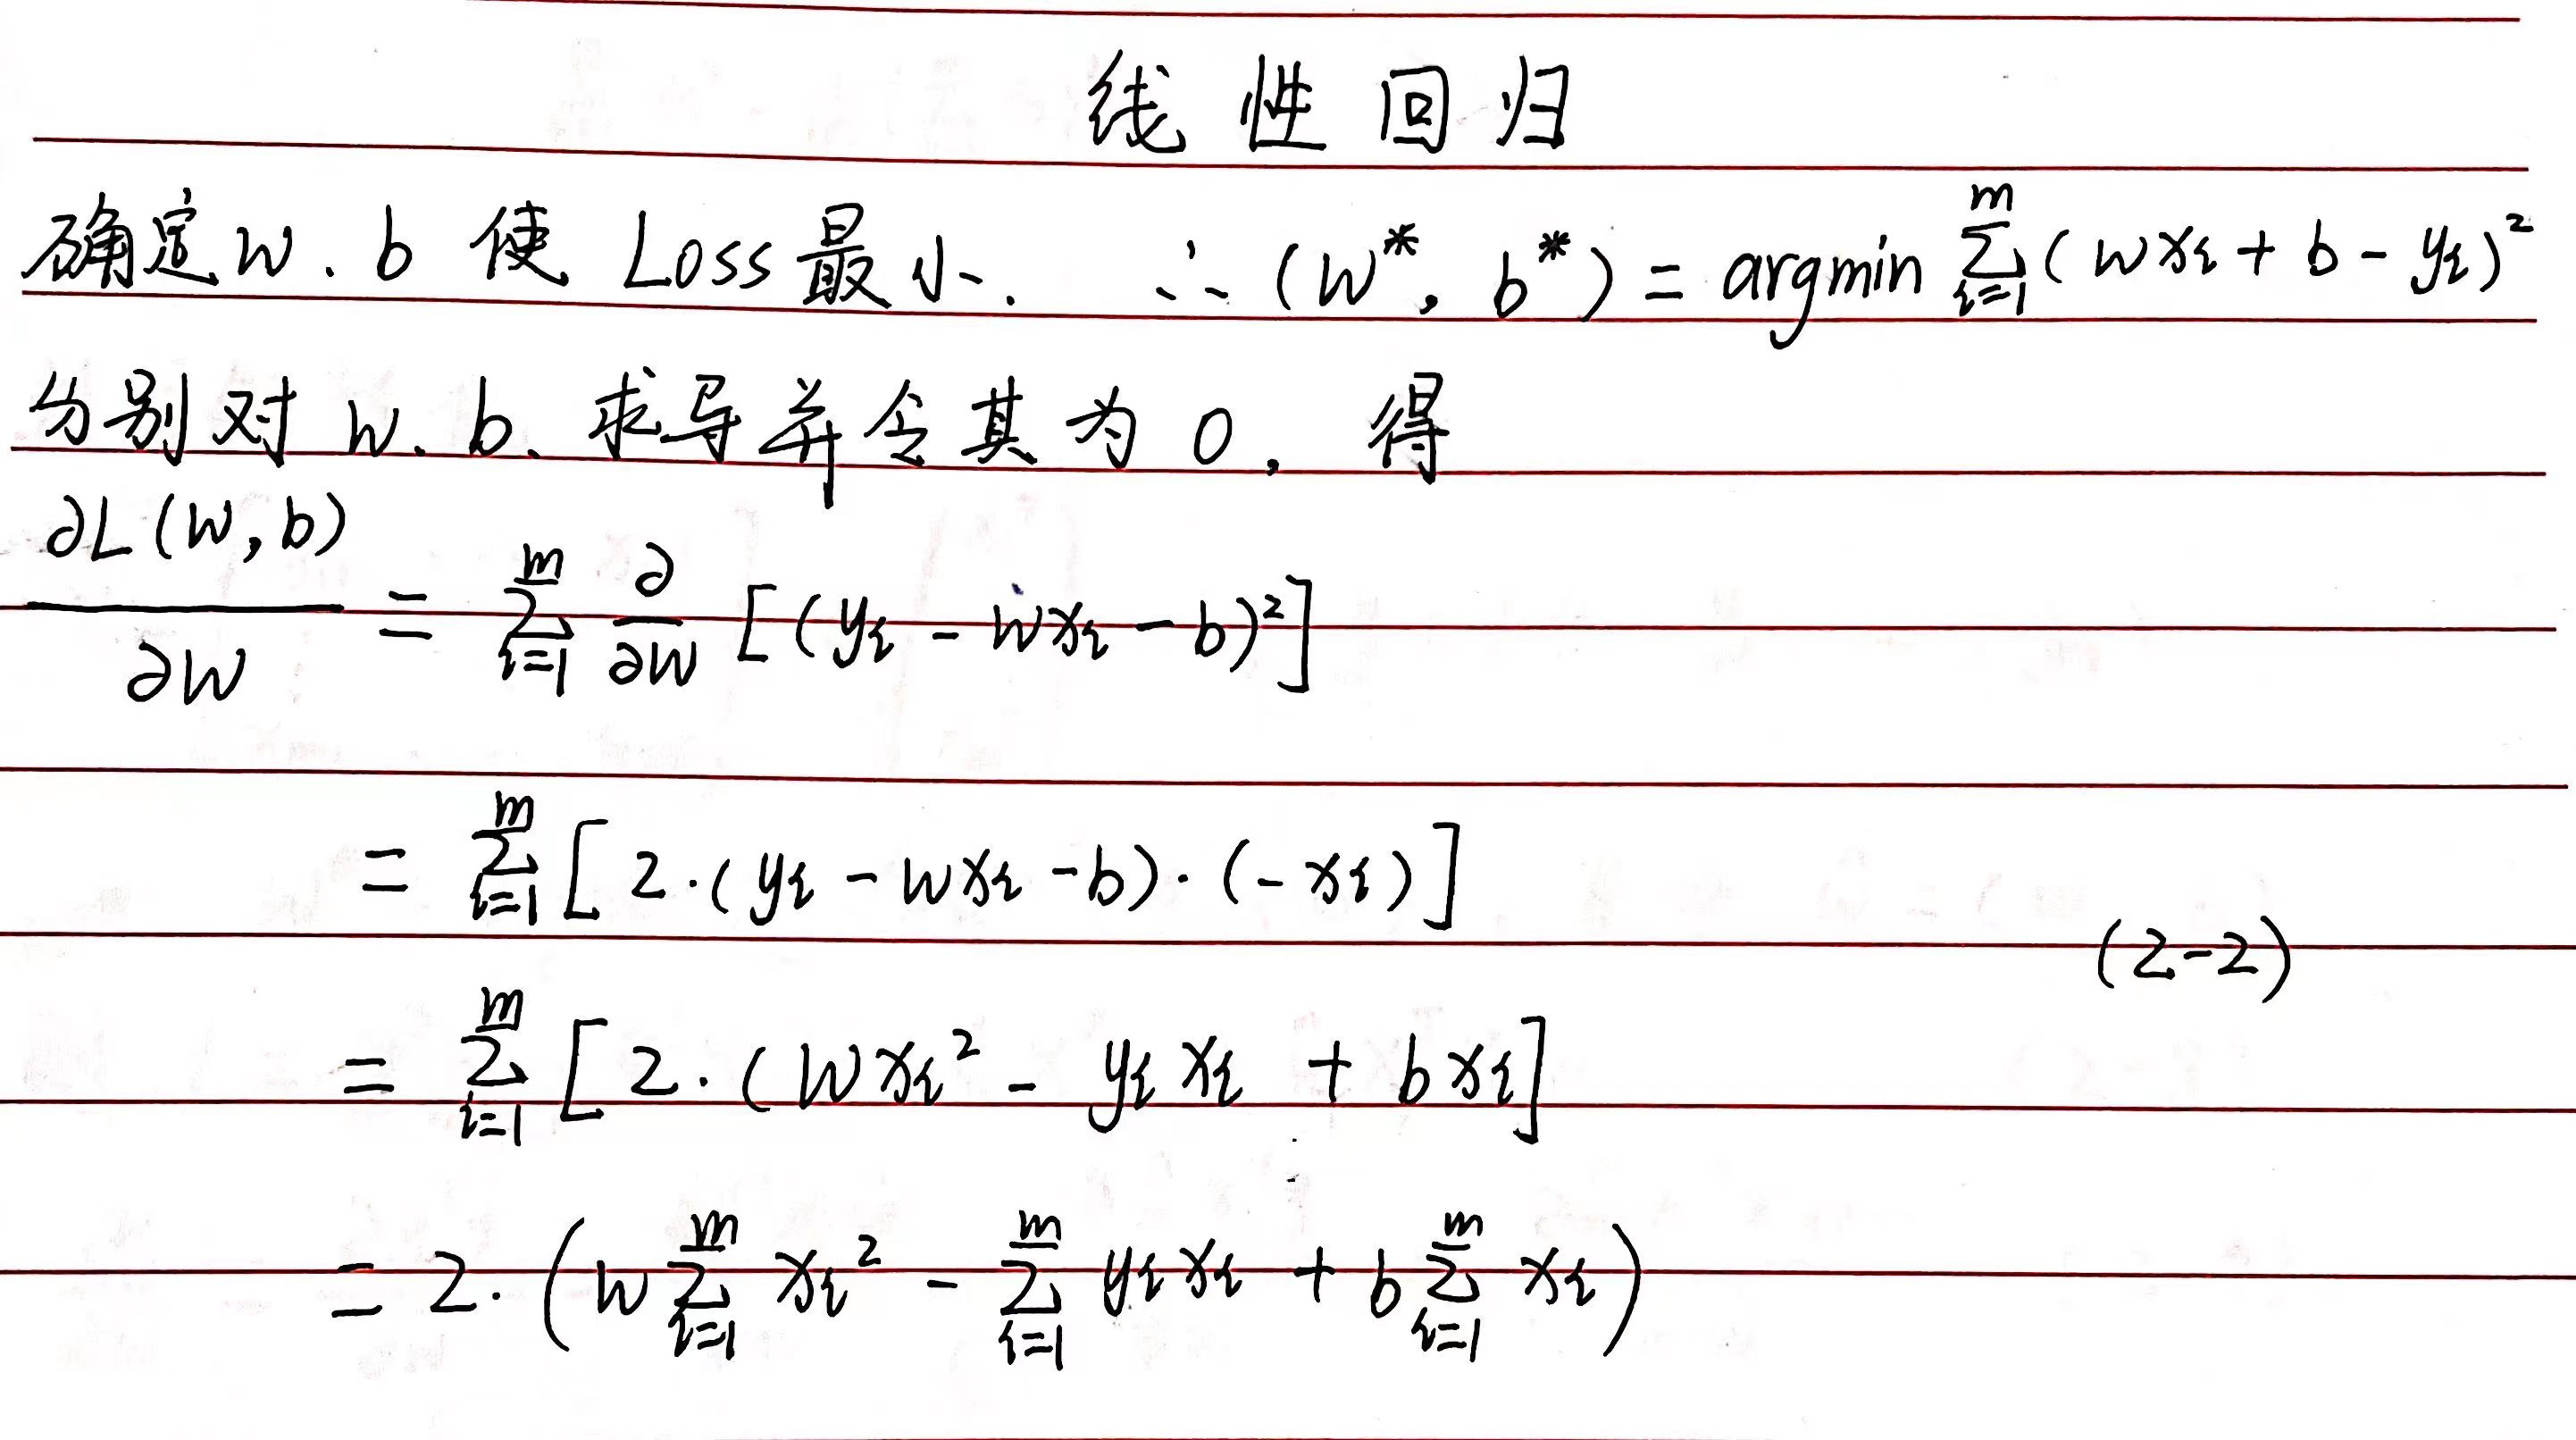 线性回归
确定w.b 使 Loss最小. ∴ (w*, b*) = argmin ∑_{i=1}^{m} (wx_i + b - y_i)²
分别对 w. b. 求导并令其为 0, 得
∂L(w,b)/∂w = ∑_{i=1}^{m} ∂/∂w [(y_i - wx_i - b)²]
= ∑_{i=1}^{m} [2·(y_i - wx_i - b)·(-x_i)]
(2-2)
= ∑_{i=1}^{m} [2·(wx_i² - y_i x_i + bx_i]
= 2·(w∑_{i=1}^{m} x_i² - ∑_{i=1}^{m} y_i x_i + b∑_{i=1}^{m} x_i)